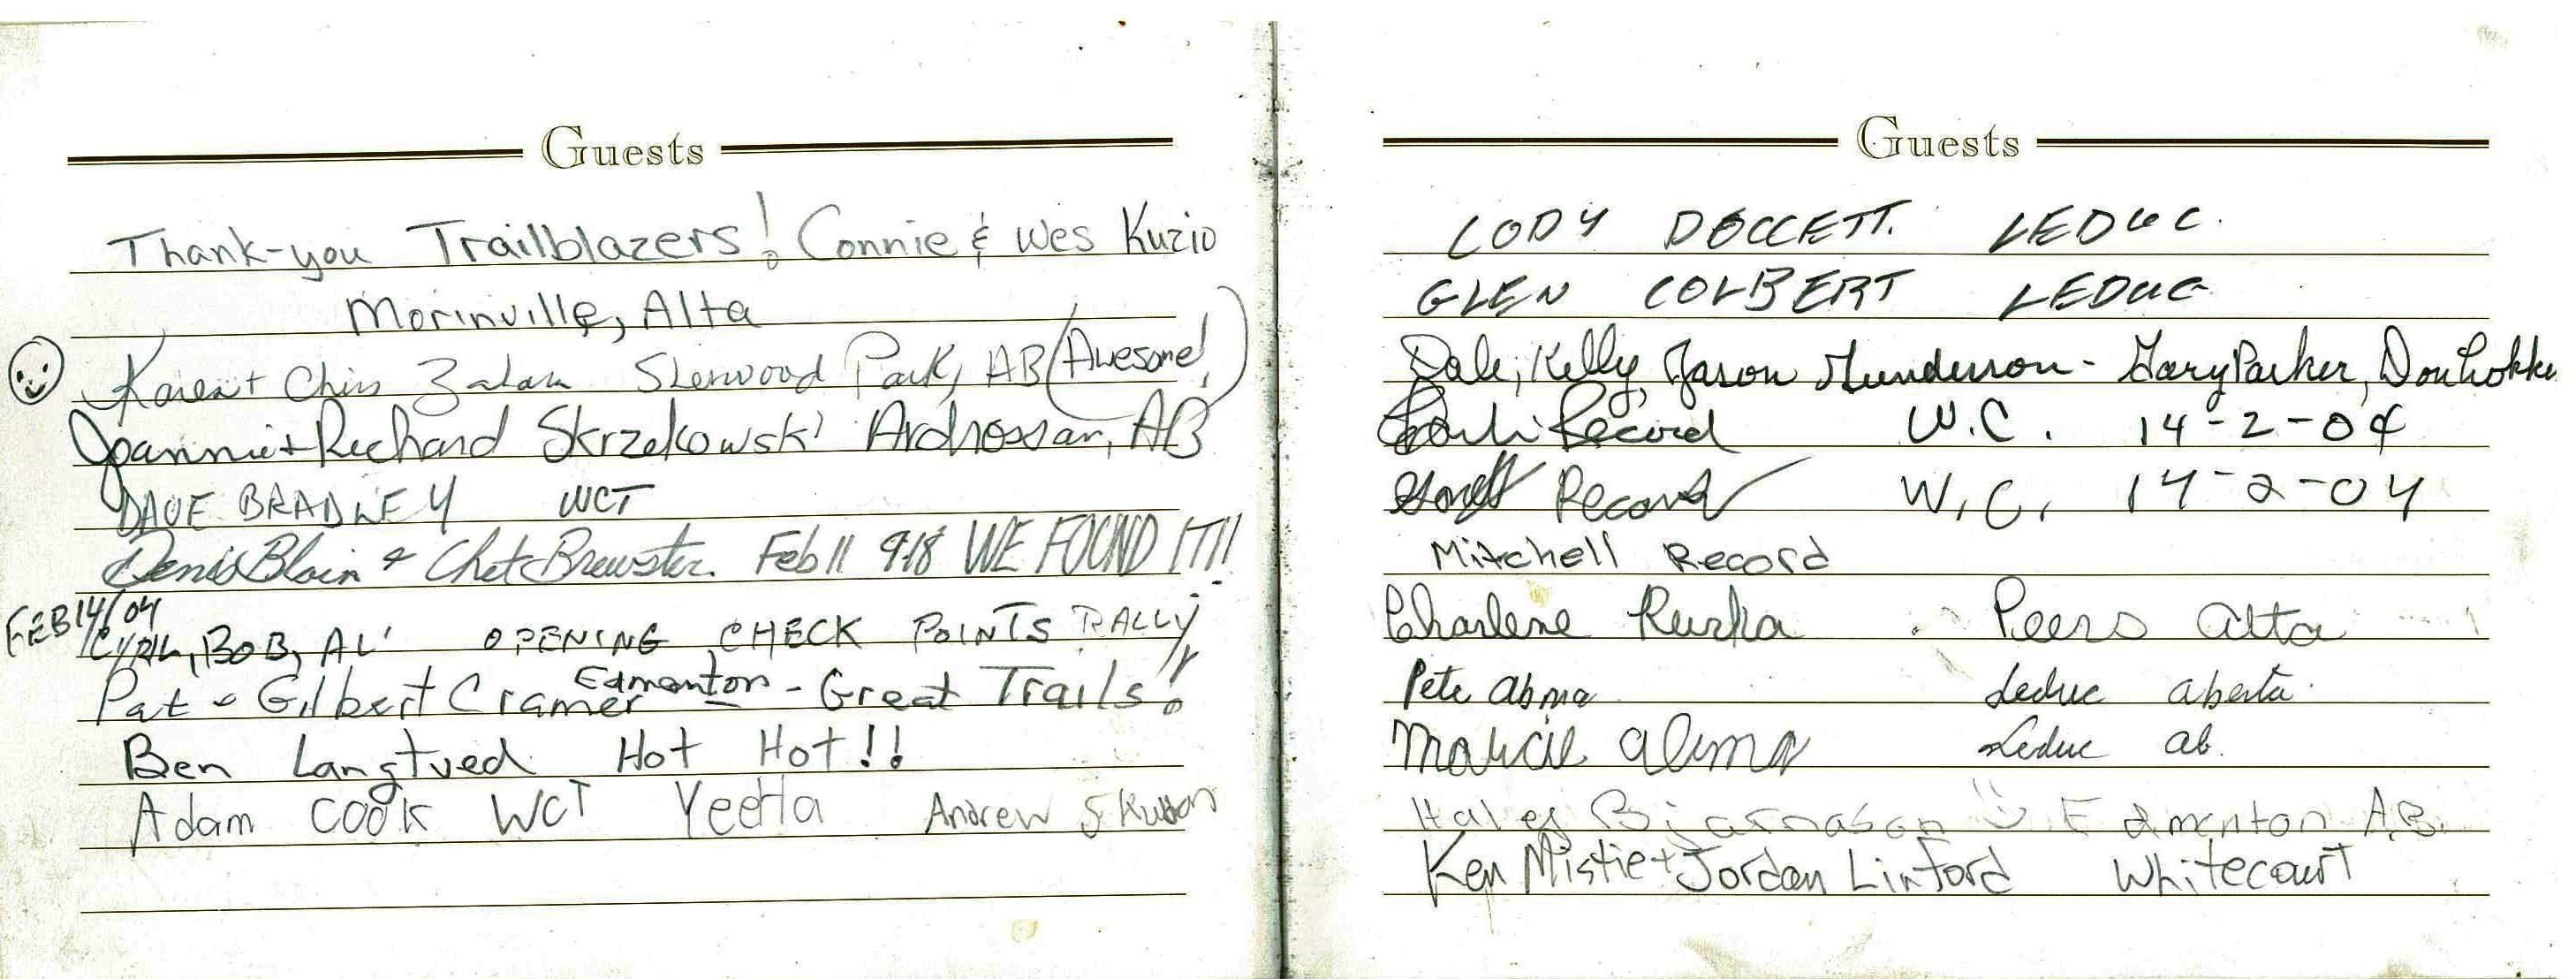 Guests
Thank-you Trailblazers! Connie & Wes Kuzio
Morinville, Alta
Karen + Chris Sherwood Park, AB (Awesome!)
Joannie + Richard Skrzekowski Ardrossan, AB
DAVE BRADLEY WCT
Denis Blain & Chet Brewster. Feb 11 9:18 WE FOUND IT!!
FEB 14/04
CYRIL, BOB, AL OPENING CHECK POINTS RALLY!
Pat & Gilbert Cramer Edmonton - Great Trails!
Ben Langtved Hot Hot!!
Adam Cook WCT YeeHa Andrew
Guests
CODY LEDUC.
GLEN COLBERT LEDUC
Dale, Kelly, Jason Gunderson - Gary Parker, Don
Record W.C. 14-2-04
Record W.C. 14-2-04
Mitchell Record
Charlene Kurka Peers Alta
Pete Abma Leduc Aberta.
Marcie Abma Leduc ab.
Haley Bjarnason Edmonton A.B.
Ken Mistie + Jordan Linford Whitecourt